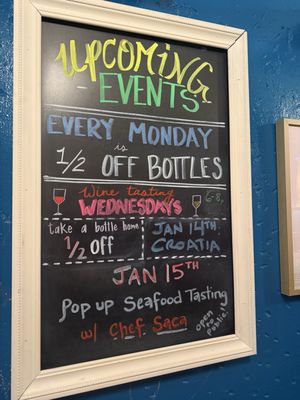 UPCOMING
- EVENTS -
EVERY MONDAY
is
1/2 OFF BOTTLES
Wine tasting
WEDNESDAY'S 6-8p
take a bottle home
1/2 off
JAN 14TH
CROATIA
JAN 15TH
Pop up Seafood Tasting
w/ Chef Saca
open to
public!